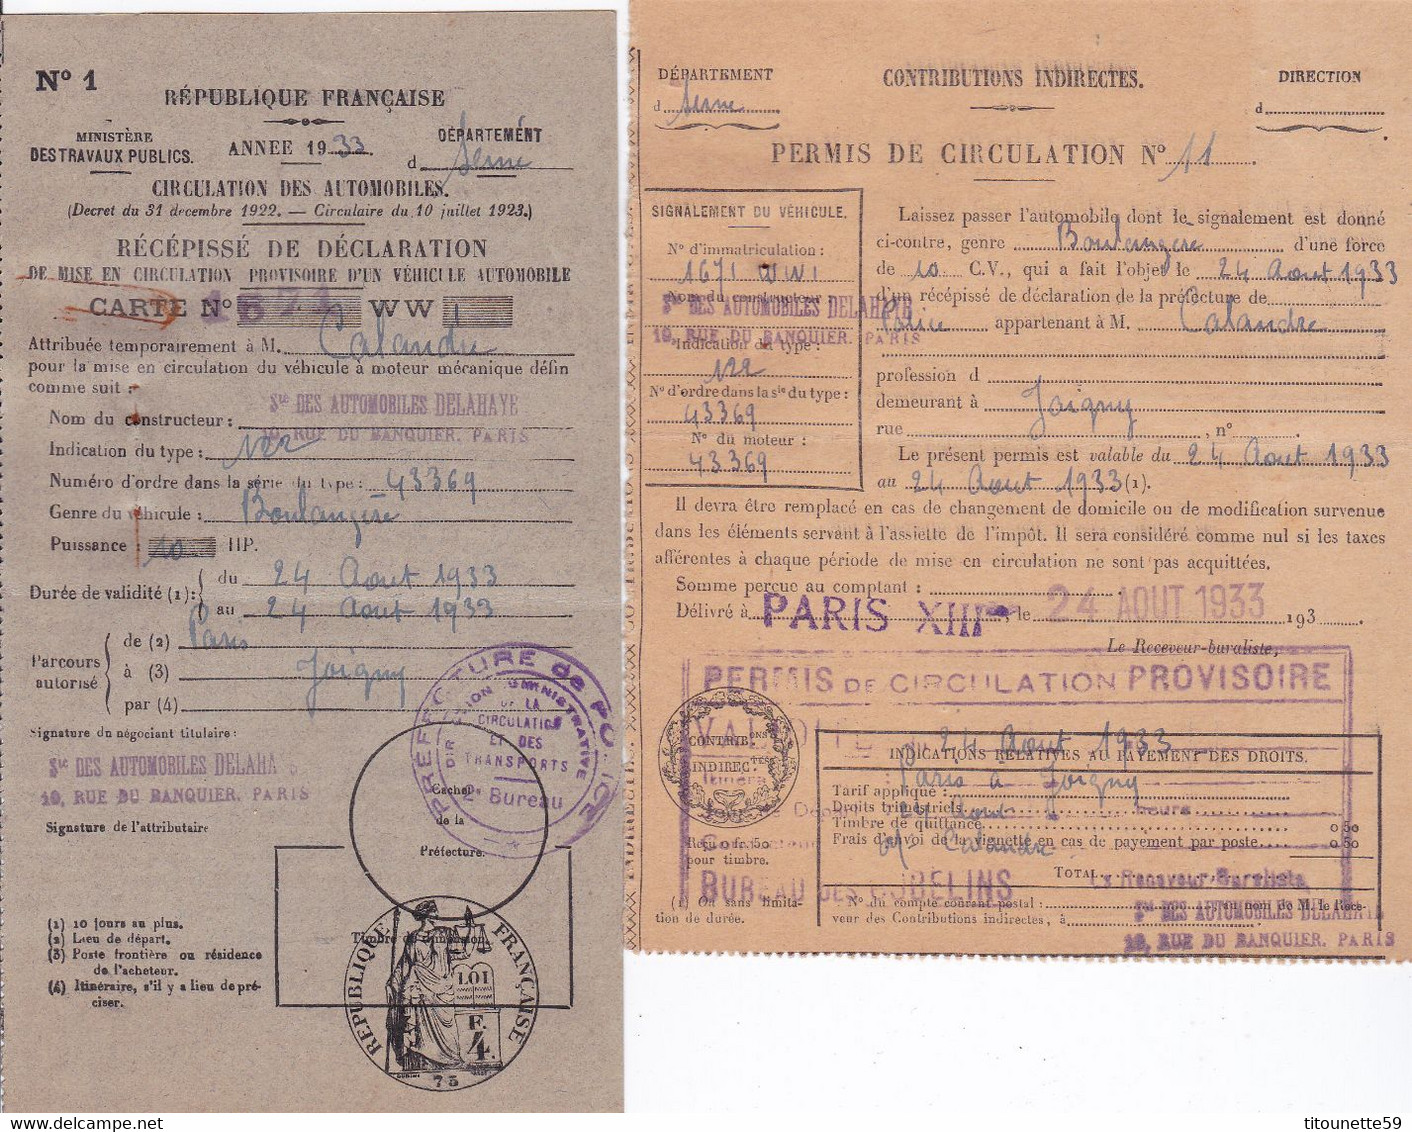 N° 1
RÉPUBLIQUE FRANÇAISE
MINISTÈRE
DES TRAVAUX PUBLICS.
ANNEE 1933
DÉPARTEMENT
d Seine
CIRCULATION DES AUTOMOBILES.
(Decret du 31 decembre 1922. — Circulaire du 10 juillet 1923.)
RÉCÉPISSÉ DE DÉCLARATION
DE MISE EN CIRCULATION PROVISOIRE D'UN VÉHICULE AUTOMOBILE
CARTE N° 1671 WW 1
Attribuée temporairement à M. Calandre
pour la mise en circulation du véhicule à moteur mécanique défin
comme suit :
Nom du constructeur : Sté DES AUTOMOBILES DELAHAYE
10, RUE DU BANQUIER. PARIS
Indication du type : 122
Numéro d'ordre dans la série du type : 43369
Genre du véhicule : Boulangère
Puissance : 10 HP.
Durée de validité (1) : du 24 Aout 1933
au 24 Aout 1933
Parcours autorisé
de (2) Paris
à (3) Joigny
par (4)
Signature du négociant titulaire :
Sté DES AUTOMOBILES DELAHA
10, RUE DU BANQUIER. PARIS
Signature de l'attributaire
PRÉFECTURE de POLICE
DIRECTION ADMINISTRATIVE
DE LA
CIRCULATION
ET DES
TRANSPORTS
2e Bureau
Cachet
de la
Préfecture.
Timbre de dimension.
RÉPUBLIQUE FRANÇAISE
LOI
F.
4.
75
(1) 10 jours au plus.
(2) Lieu de départ.
(3) Poste frontière ou résidence
de l'acheteur.
(4) Itinéraire, s'il y a lieu de pré-
ciser.
DÉPARTEMENT
d Seine
CONTRIBUTIONS INDIRECTES.
DIRECTION
d
PERMIS DE CIRCULATION N° 11
SIGNALEMENT DU VÉHICULE.
N° d'immatriculation :
1671 WW1
Nom du constructeur :
Sté DES AUTOMOBILES DELAHAYE
10, RUE DU BANQUIER. PARIS
Indication du type :
122
N° d'ordre dans la sie du type :
43369
N° du moteur :
43369
Laissez passer l'automobile dont le signalement est donné
ci-contre, genre Boulangère d'une force
de 10 C.V., qui a fait l'objet le 24 Aout 1933
d'un récépissé de déclaration de la préfecture de
Police appartenant à M. Calandre
profession d
demeurant à Joigny
rue , n° .
Le présent permis est valable du 24 Aout 1933
au 24 Aout 1933 (1).
Il devra être remplacé en cas de changement de domicile ou de modification survenue
dans les éléments servant à l'assiette de l'impôt. Il sera considéré comme nul si les taxes
afférentes à chaque période de mise en circulation ne sont pas acquittées.
Somme perçue au comptant :
Délivré à PARIS XIIIe, le 24 AOUT 1933 193 .
Le Receveur-buraliste,
PERMIS DE CIRCULATION PROVISOIRE
24 Aout 1933
CONTRIBons
INDIRECtes
Reçu 0 fr. 50
pour timbre.
INDICATIONS RELATIVES AU PAYEMENT DES DROITS.
Paris à Joigny
Tarif appliqué :
Droits trimestriels
Timbre de quittance 0 50
Frais d'envoi de la vignette en cas de payement par poste 0 50
Calandre
TOTAL
Le Receveur-Buraliste
BUREAU DES GOBELINS
(1) Ou sans limita-
tion de durée.
N° du compte courant postal : au nom de M. le Rece-
veur des Contributions indirectes, à
Sté DES AUTOMOBILES DELAHAYE
10, RUE DU BANQUIER. PARIS
titounette59